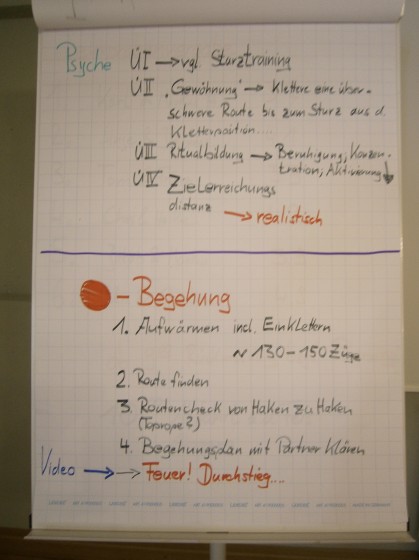 Psyche ÜI → vgl. Sturztraining
ÜII „Gewöhnung" → Klettere eine über-
schwere Route bis zum Sturz aus d.
Kletterposition....
ÜIII Ritualbildung → Beruhigung, Konzen-
tration, Aktivierung
ÜIV Zielerreichungs
distanz
→ realistisch
- Begehung
1. Aufwärmen incl. Einklettern
~ 130-150 Züge
2. Route finden
3. Routencheck von Haken zu Haken
(Toprope?)
4. Begehungsplan mit Partner klären
Video → → Feuer! Durchstieg....